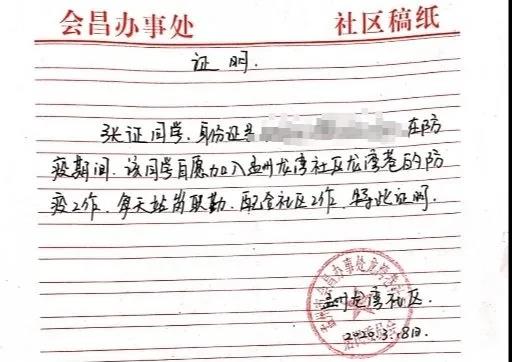 会昌办事处 社区稿纸
证明.
张证同学.身份证号 在防
疫期间.该同学自愿加入孟州龙湾社区龙湾巷的防
疫工作.每天站岗职勤.配合社区工作.特此证明.
孟州龙湾社区.
2020.3.18日.